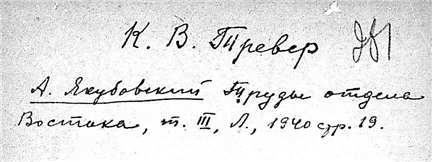 К. В. Тревер
А. Якубовский Труды отдела
Востока, т. III, Л., 1940 стр. 19.